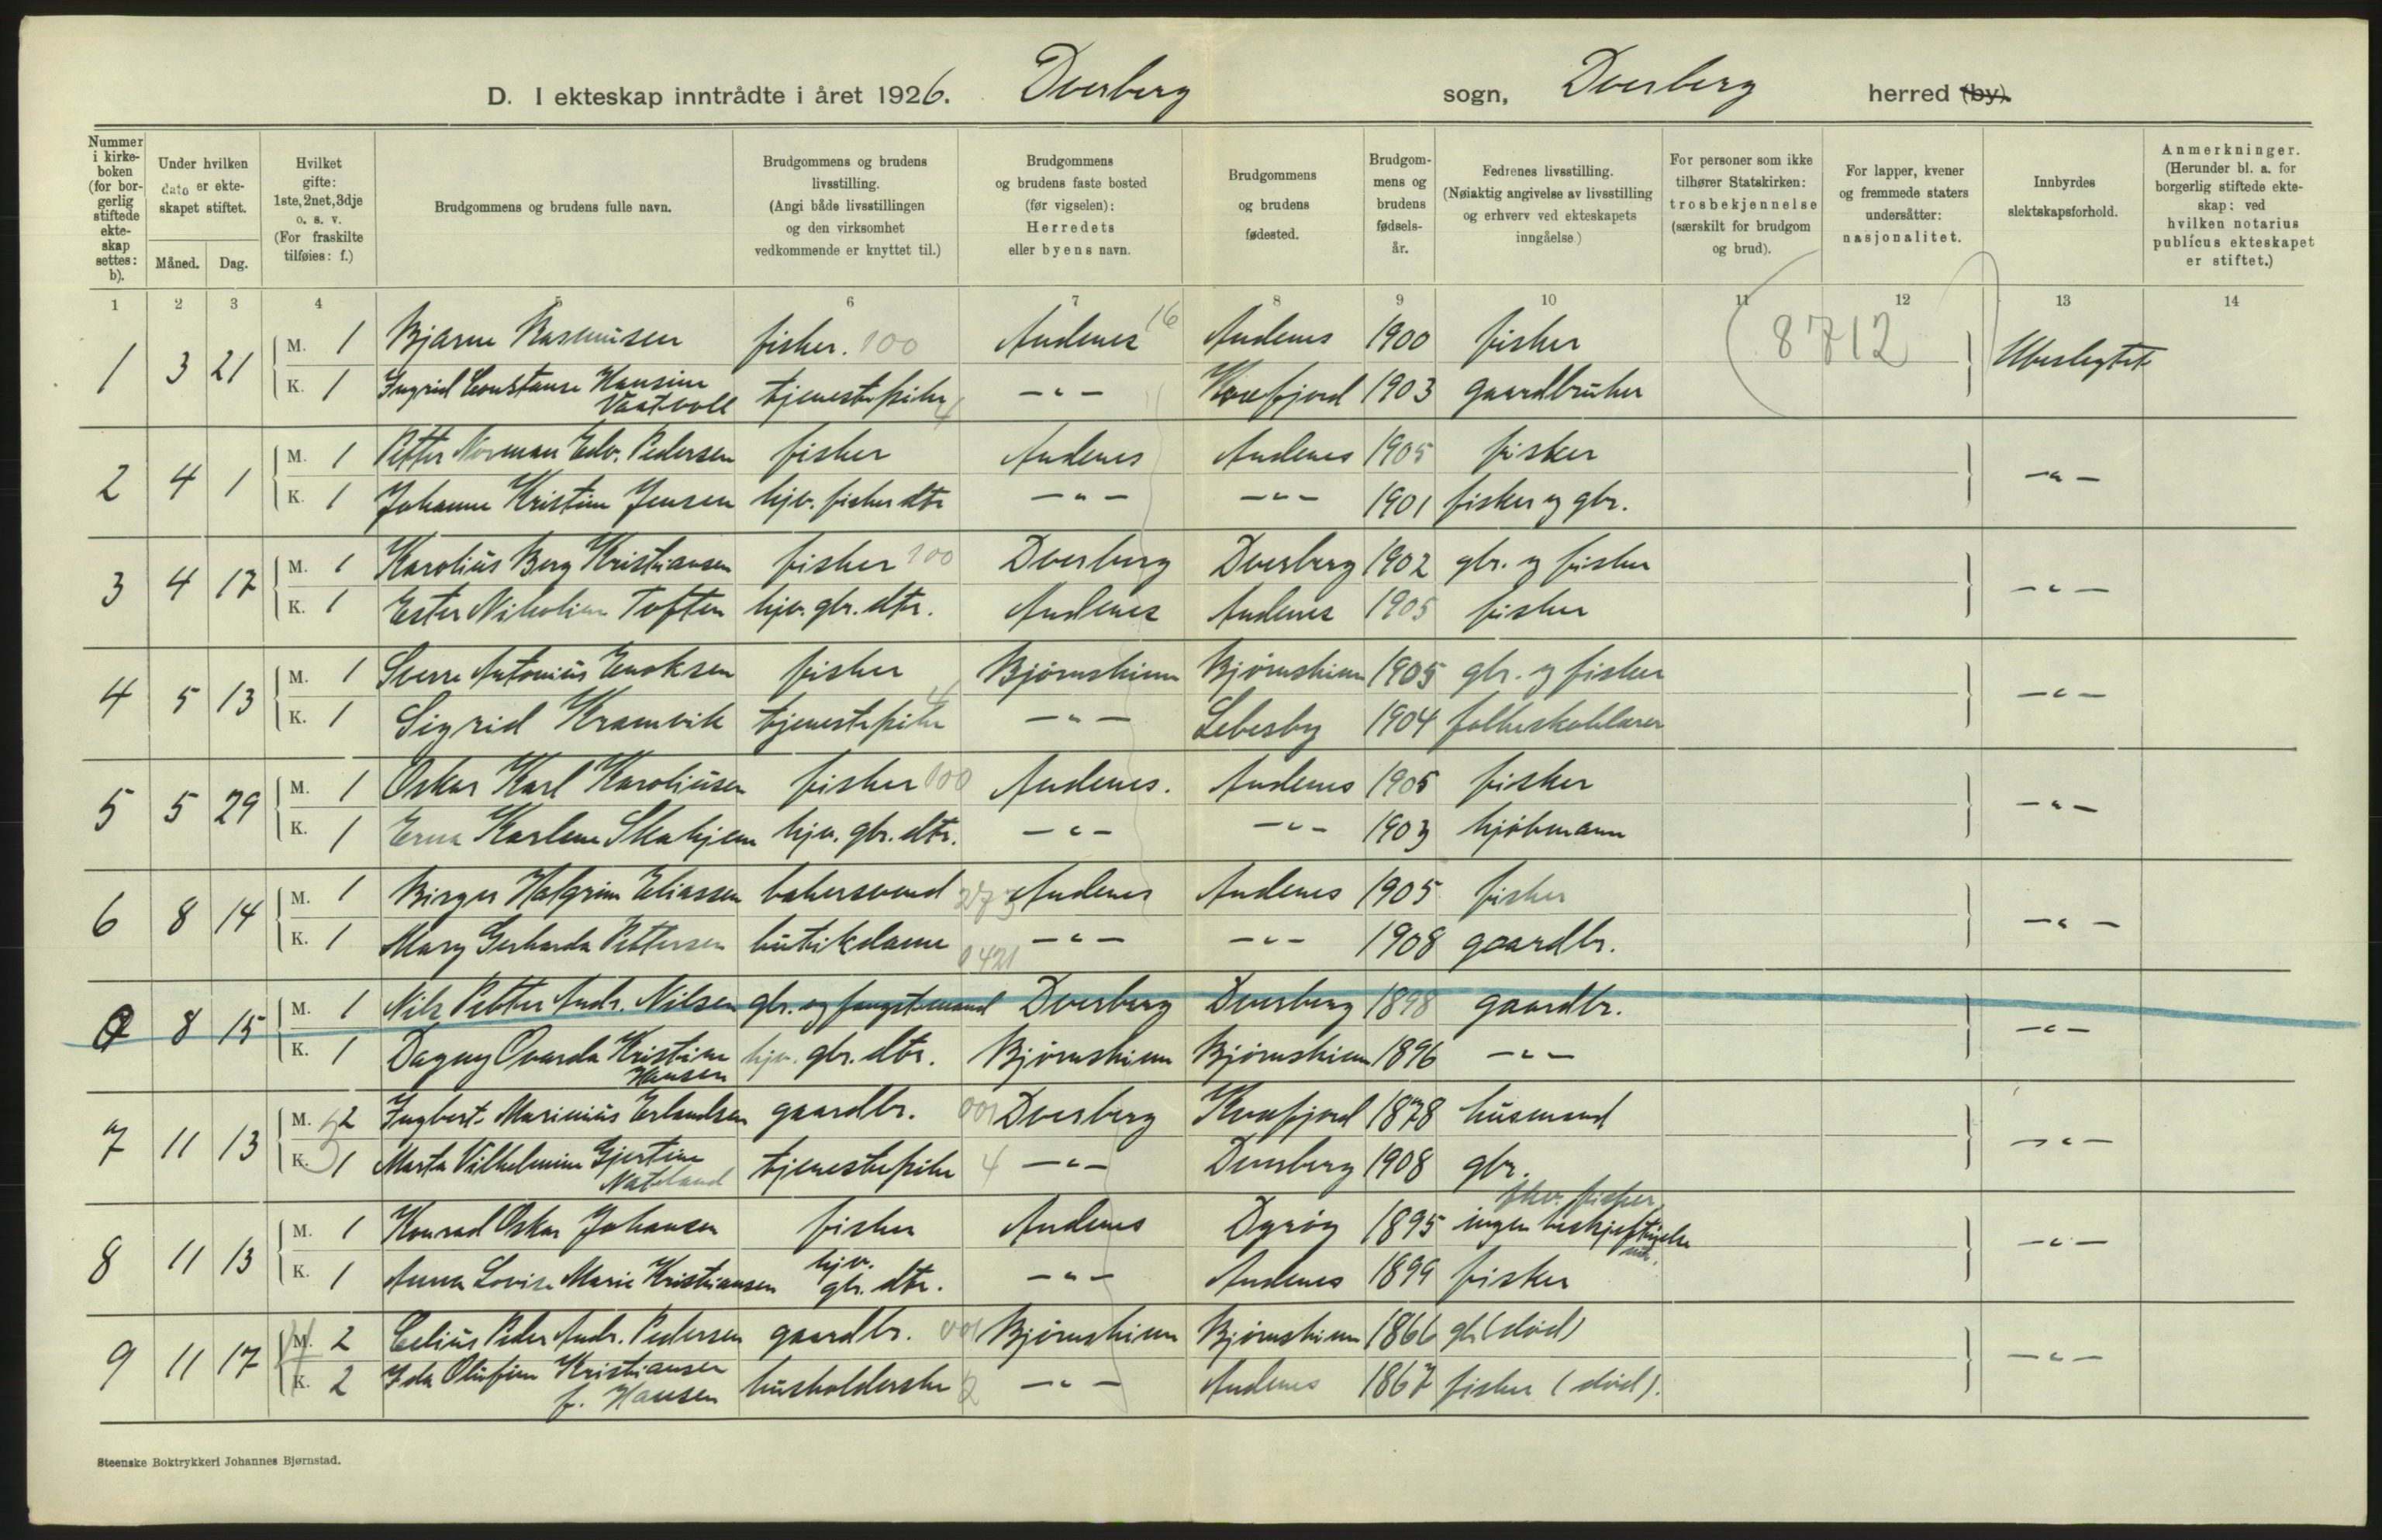 D. I ekteskap inntrådte i året 1926. Dverberg sogn, Dverberg herred (by).
Nummer i kirke-boken (for bor-gerlig stiftede ekte-skap settes: b).
Under hvilken dato er ekte-skapet stiftet.
Måned. Dag.
Hvilket gifte: 1ste, 2net, 3dje o. s. v. (For fraskilte tilføies: f.)
Brudgommens og brudens fulle navn.
Brudgommens og brudens livsstilling. (Angi både livsstillingen og den virksomhet vedkommende er knyttet til.)
Brudgommens og brudens faste bosted (før vigselen): Herredets eller byens navn.
Brudgommens og brudens fødested.
Brudgom-mens og brudens fødsels-år.
Fedrenes livsstilling. (Nøiaktig angivelse av livsstilling og erhverv ved ekteskapets inngåelse)
For personer som ikke tilhører Statskirken: trosbekjennelse (særskilt for brudgom og brud).
For lapper, kvener og fremmede staters undersåtter: nasjonalitet.
Innbyrdes slektskapsforhold.
Anmerkninger. (Herunder bl. a. for borgerlig stiftede ekte-skap: ved hvilken notarius publícus ekteskapet er stiftet.)
1 2 3 4 5 6 7 8 9 10 11 12 13 14
1 3 21 M. 1 Bjarne Rasmusen fisker. 100 Andenes 16 Andenes 1900 fisker 8712 Ubeslegtet
K. 1 Ingrid Constanse Hansine Vaatvoll tjenestepike 4 -"- Kvæfjord 1903 gaardbruker
2 4 1 M. 1 Petter Norman Edv. Pedersen fisker Andenes Andenes 1905 fisker -"-
K. 1 Johanne Kristine Jensen hjv. fisker dtr -"- -"- 1901 fisker og gbr.
3 4 17 M. 1 Karolius Berg Kristiansen fisker 100 Dverberg Dverberg 1902 gbr. og fisker -"-
K. 1 Ester Nikoline Toften hjv. gbr. dtr. Andenes Andenes 1905 fisker
4 5 13 M. 1 Sverre Antonius Enoksen fisker Bjørnskinn Bjørnskinn 1905 gbr. og fisker -"-
K. 1 Sigrid Kramvik tjenestepike 4 -"- Lebesby 1904 folkeskolelærer
5 5 29 M. 1 Oskar Karl Karoliusen fisker 100 Andenes. Andenes 1905 fisker -"-
K. 1 Erna Karlene Skahjem hjv. gbr. dtr. -"- -"- 1903 kjøbmann
6 8 14 M. 1 Birger Halgrim Eliassen bakersvend 273 Andenes Andenes 1905 fisker -"-
K. 1 Mary Gerharda Pettersen butikdame 0421 -"- -"- 1908 gaardbr.
8 15 M. 1 Nils Petter Andr. Nilsen gbr. og fangstmand Dverberg Dverberg 1898 gaardbr. -"-
K. 1 Dagny Ovarda Kristine Hansen hjv. gbr. dtr. Bjørnskinn Bjørnskinn 1896 -"-
7 11 13 M. 2 Ingbert Marinius Erlandsen gaardbr. 001 Dverberg Kvæfjord 1878 husmand -"-
K. 1 Marta Vilhelmine Gjertine Natland tjenestepike 4 -"- Dverberg 1908 gbr.
8 11 13 M. 1 Konrad Oskar Johansen fisker Andenes Dyrøy 1895 fhv. fisker ingen beskjeftigelse -"-
K. 1 Anna Lovise Marie Kristiansen hjv. gbr. dtr. -"- Andenes 1899 fisker
9 11 17 M. 2 Celius Peder Andr. Pedersen gaardbr. 001 Bjørnskinn Bjørnskinn 1866 gbr (død) -"-
K. 2 Ida Olufine Kristiansen f. Hansen husholderske 2 -"- Andenes 1867 fisker (død).
Steenske Boktrykkeri Johannes Bjørnstad.